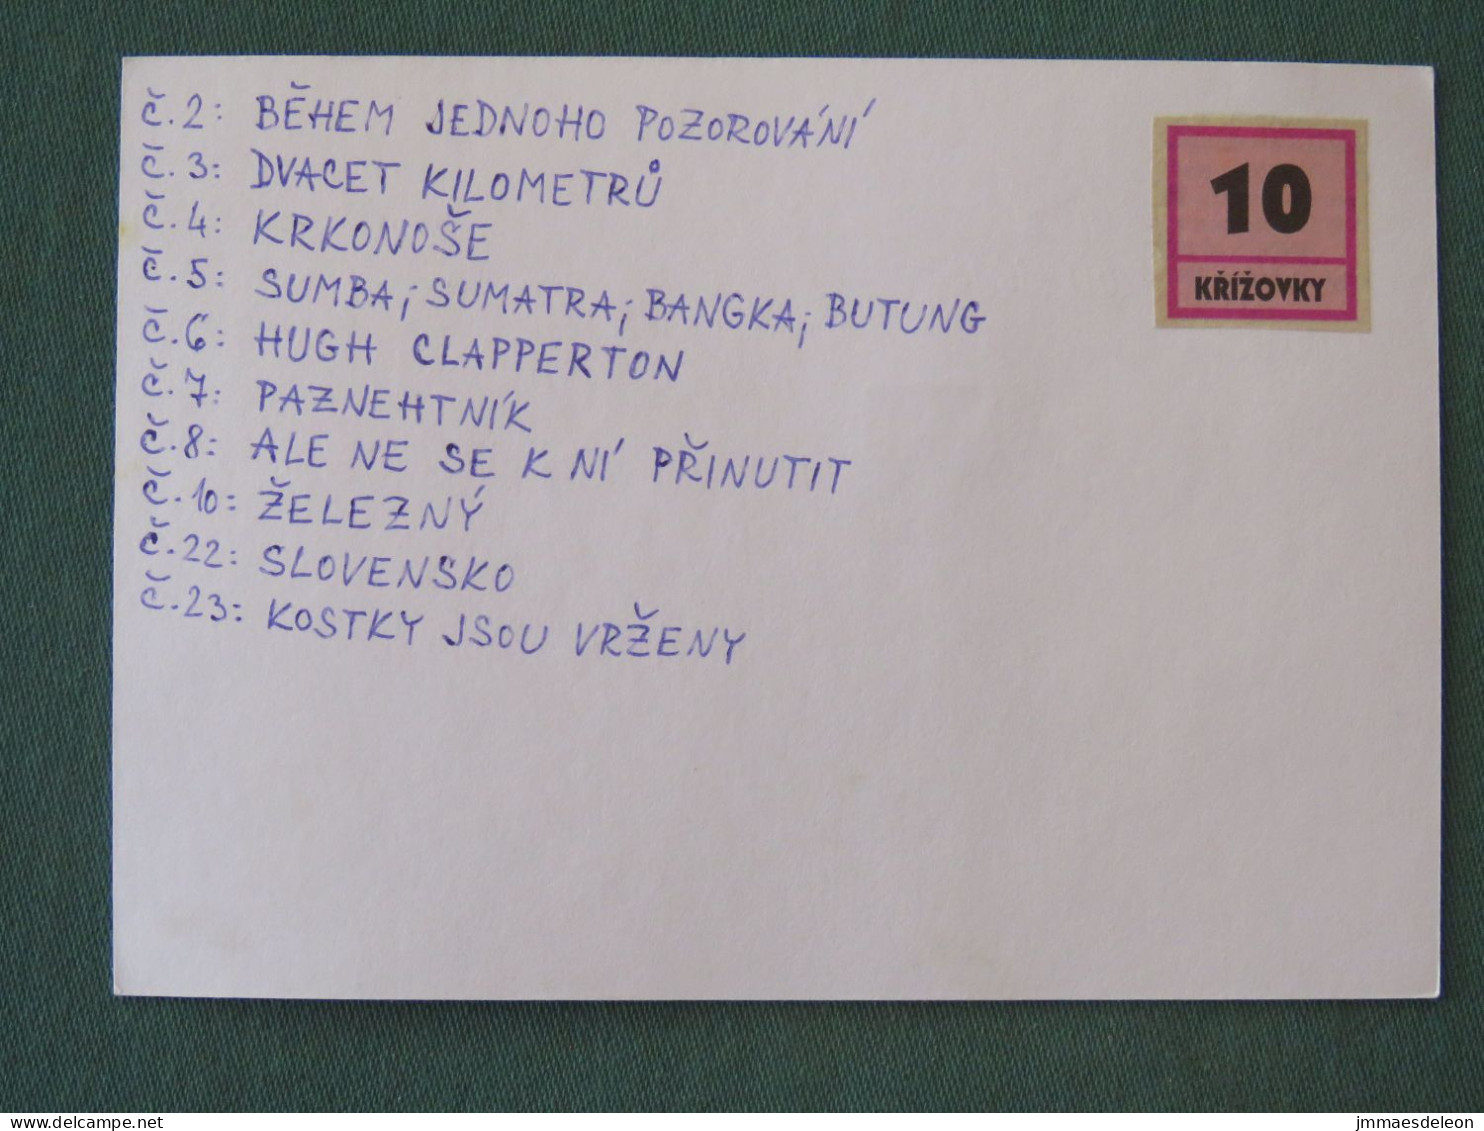 č.2: BĚHEM JEDNOHO POZOROVÁNÍ
č.3: DVACET KILOMETRŮ
č.4: KRKONOŠE
č.5: SUMBA; SUMATRA; BANGKA; BUTUNG
č.6: HUGH CLAPPERTON
č.7: PAZNEHTNÍK
č.8: ALE NE SE K NÍ PŘINUTIT
č.10: ŽELEZNÝ
č.22: SLOVENSKO
č.23: KOSTKY JSOU VRŽENY
10
KŘÍŽOVKY
https://www.delcampe.net
jmmaesdeleon